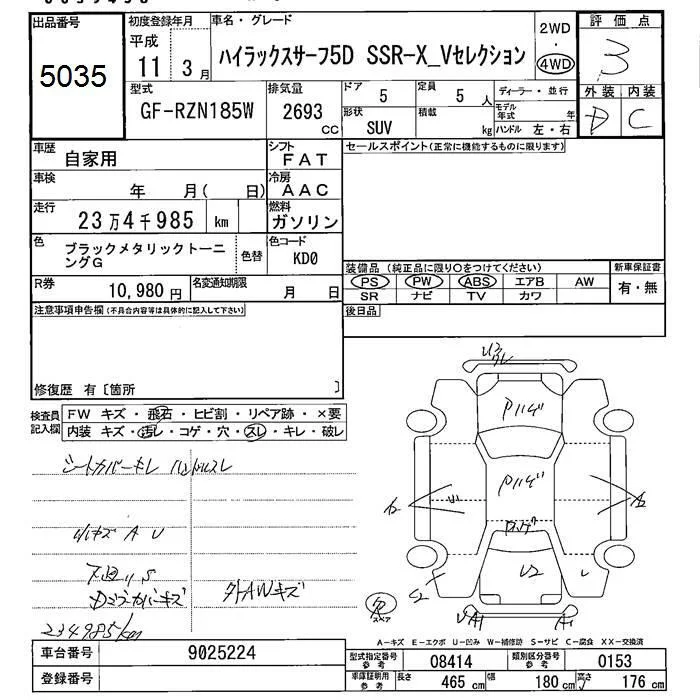 出品番号 初度登録年月 車名・グレード 2WD 評価点
5035 平成 11 3月 ハイラックスサーフ5D SSR-X_Vセレクション ・ 4WD 3
型式 排気量 ドア 定員 ディーラー・並行 外装 内装
GF-RZN185W 2693 cc 5 5 人 モデル年式 年 D C
形状 SUV 積載 kg ハンドル 左・右
車歴 自家用 シフト FAT セールスポイント(正常に機能するものに限ります)
車検 年 月( 日) 冷房 AAC
走行 23万4千985 km 燃料 ガソリン
色 ブラックメタリックトーニングG 色替 色コード KD0
装備品 (純正品に限り○をつけてください) 新車保証書
PS PW ABS エアB AW 有・無
SR ナビ TV カワ
R券 10,980 円 名変通知期限 月 日
後日品
注意事項申告欄(不具合内容等は具体的に記入して下さい)
修復歴 有〔箇所 〕
検査員記入欄 FW キズ・飛石・ヒビ割・リペア跡・×要
内装 キズ・汚レ・コゲ・穴・スレ・キレ・破レ
シートカバーキレ ハンドルスレ
小キズ A U
下廻り S
Dドブカバーキズ
外AWキズ
234985km
Pハゲ
Pハゲ
Pハゲ
U2
S2
A1
スペア
A-キズ E-エクボ U-凹み W-補修跡 S-サビ C-腐食 XX-交換済
車台番号 9025224 型式指定番号 参考 08414 類別区分番号 参考 0153
登録番号 車庫証明用 参考 長さ 465 cm 幅 180 cm 高さ 176 cm